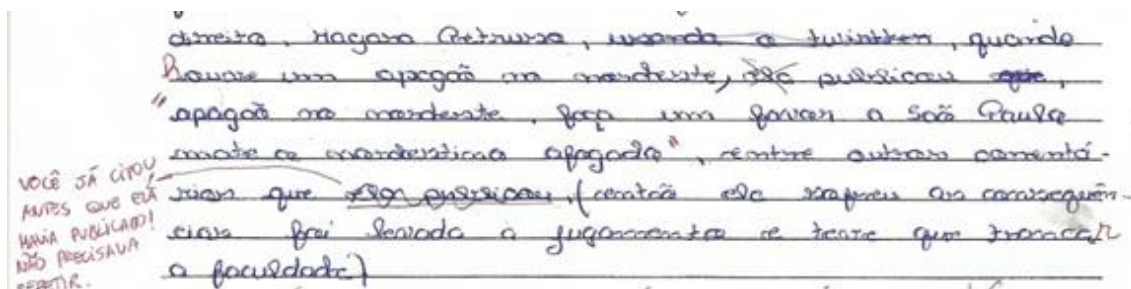 direito, Mayara Petruso, usando o twintter, quando
houve um apagão no nordeste, ela publicou que,
"apagão no nordeste, faça um favor a São Paulo
mate o nordestino afogado", entre outros comentá-
rios que ela publicou, (então ela sofreu as consequên-
cias foi levada a jugamento e teve que trancar
a faculdade)
VOCÊ JÁ CITOU
ANTES QUE ELA
HAVIA PUBLICADO!
NÃO PRECISAVA
REPETIR.